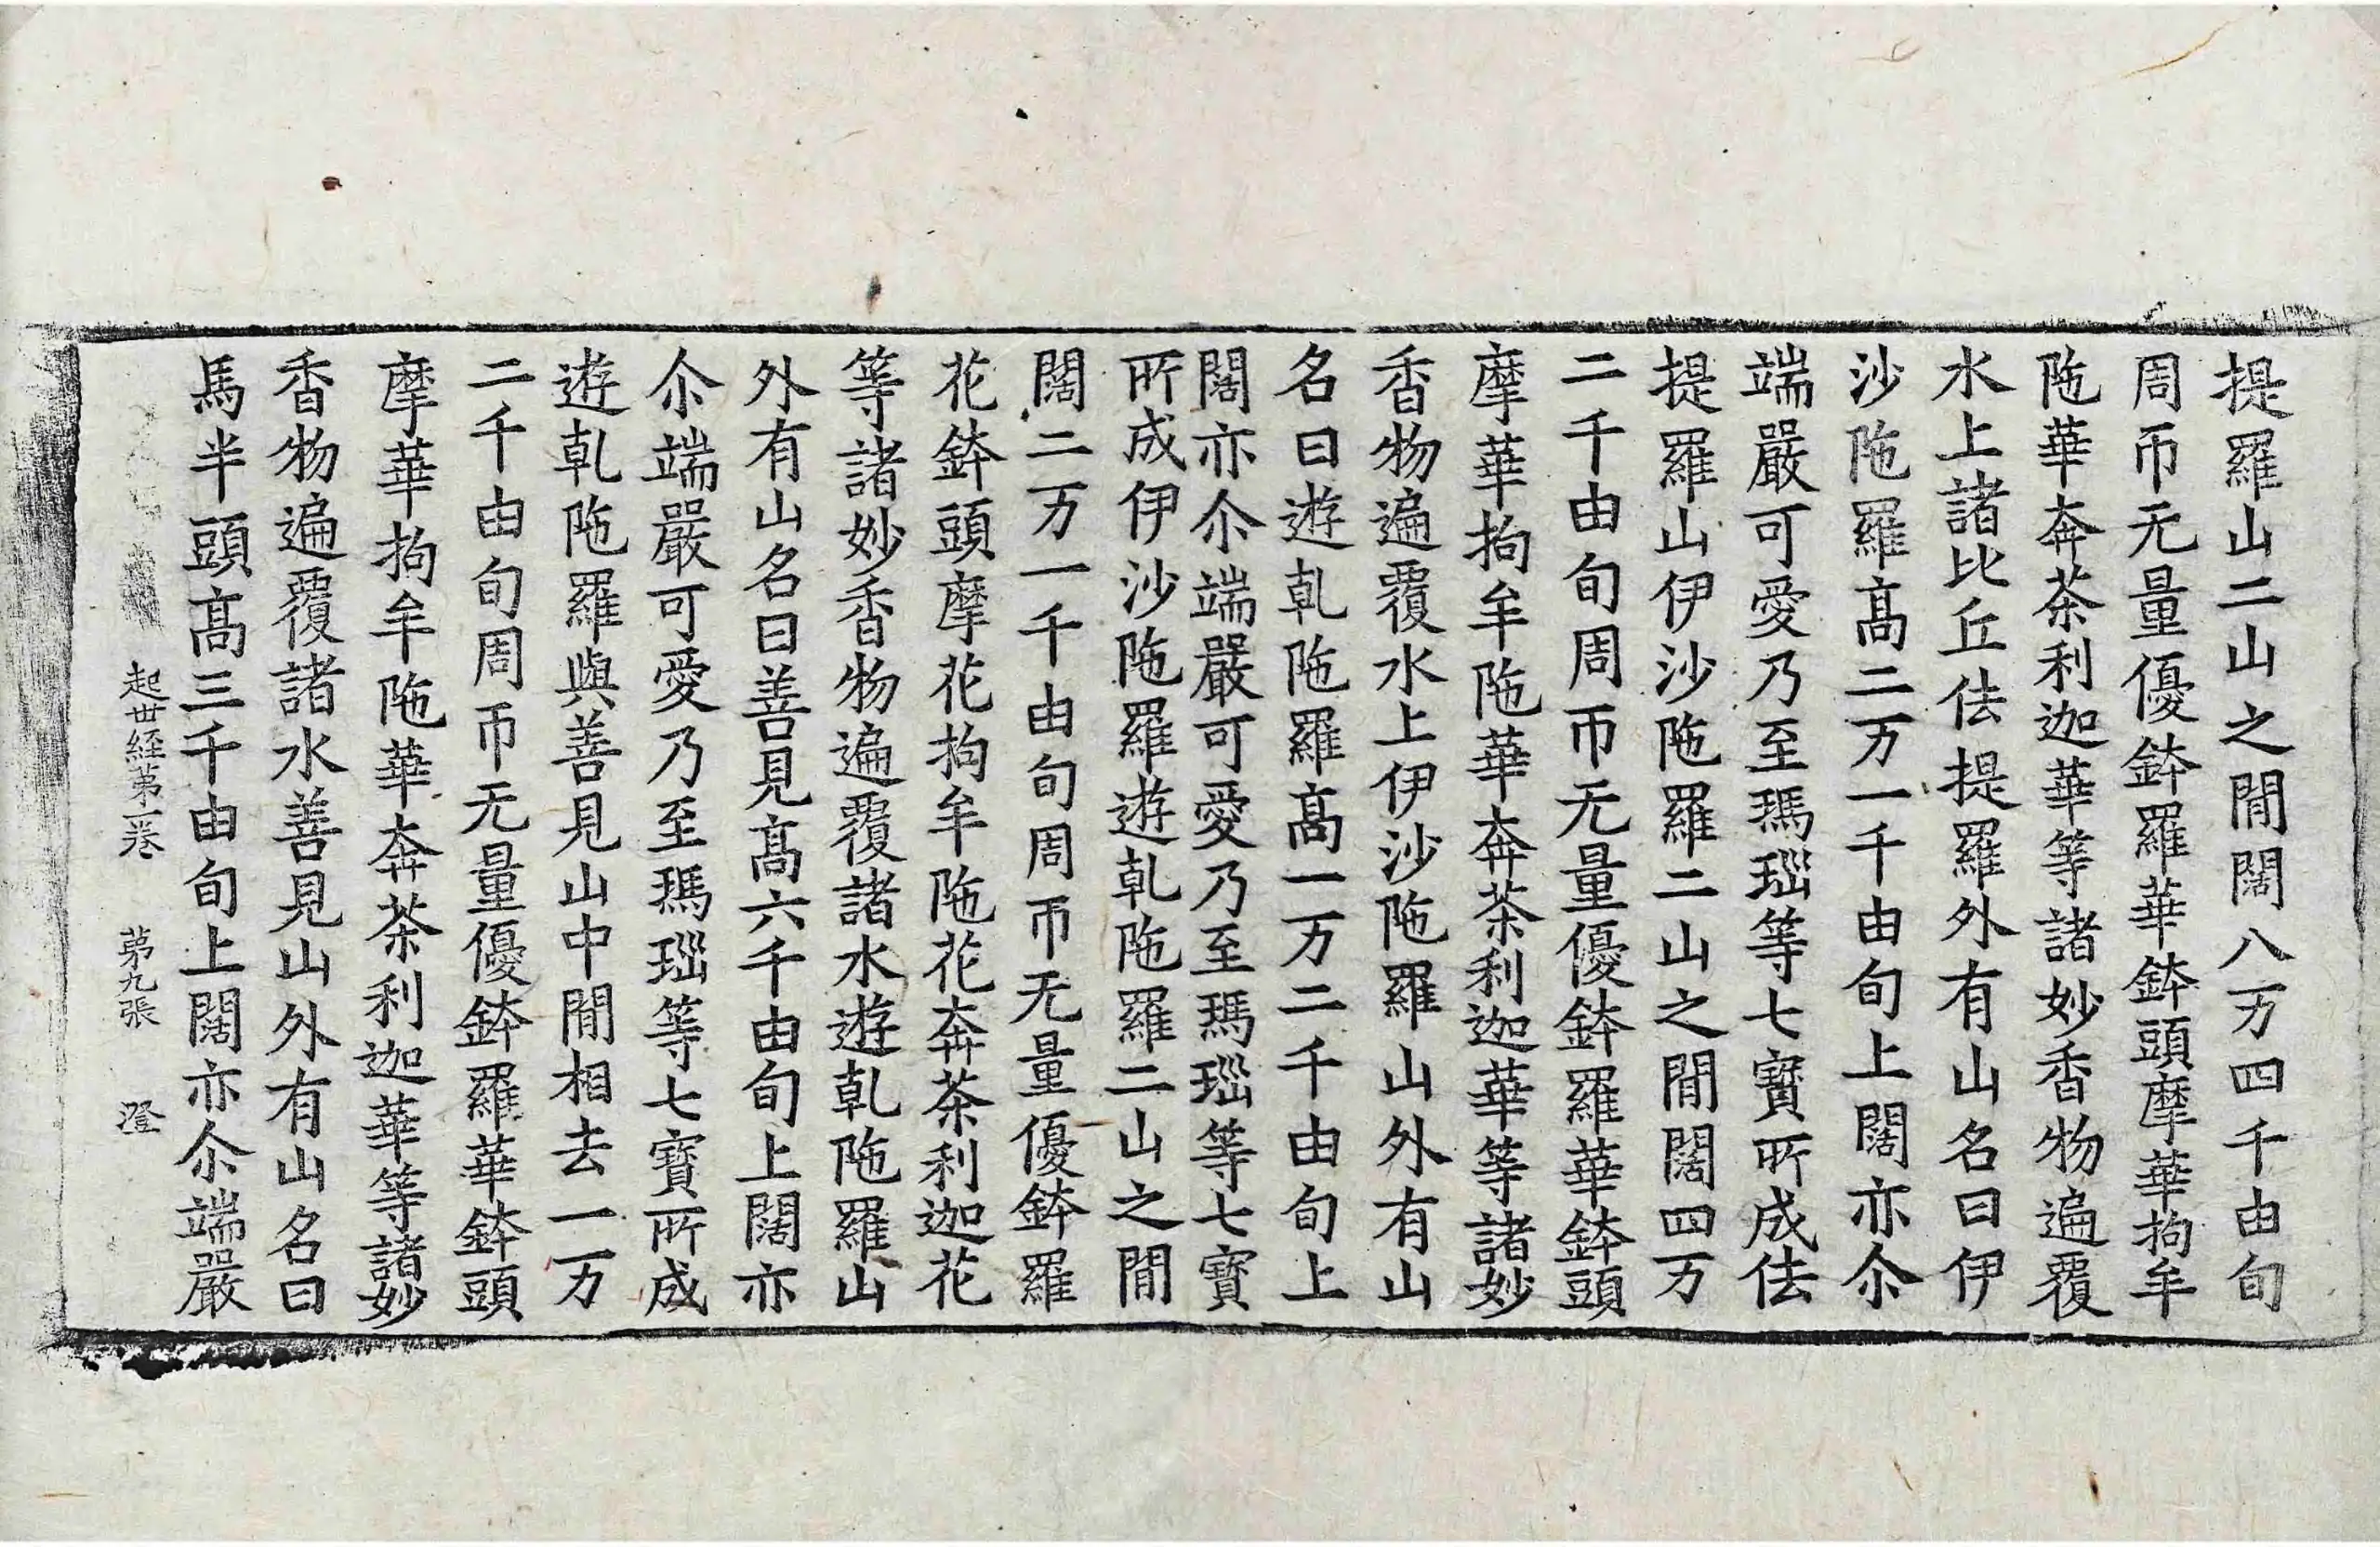 提羅山二山之間闊八万四千由旬
周帀无量優鉢羅華鉢頭摩華拘牟
陁華奔茶利迦華等諸妙香物遍覆
水上諸比丘佉提羅外有山名曰伊
沙陁羅髙二万一千由旬上闊亦尒
端嚴可愛乃至瑪瑙等七寶所成佉
提羅山伊沙陁羅二山之間闊四万
二千由旬周帀无量優鉢羅華鉢頭
摩華拘牟陁華奔茶利迦華等諸妙
香物遍覆水上伊沙陁羅山外有山
名曰遊乹陁羅髙一万二千由旬上
闊亦尒端嚴可愛乃至瑪瑙等七寶
所成伊沙陁羅遊乹陁羅二山之間
闊二万一千由旬周帀无量優鉢羅
花鉢頭摩花拘牟陁花奔茶利迦花
等諸妙香物遍覆諸水遊乹陁羅山
外有山名曰善見髙六千由旬上闊亦
尒端嚴可愛乃至瑪瑙等七寶所成
遊乹陁羅與善見山中間相去一万
二千由旬周帀无量優鉢羅華鉢頭
摩華拘牟陁華奔茶利迦華等諸妙
香物遍覆諸水善見山外有山名曰
馬半頭髙三千由旬上闊亦尒端嚴
起世經第一卷 第九張 澄